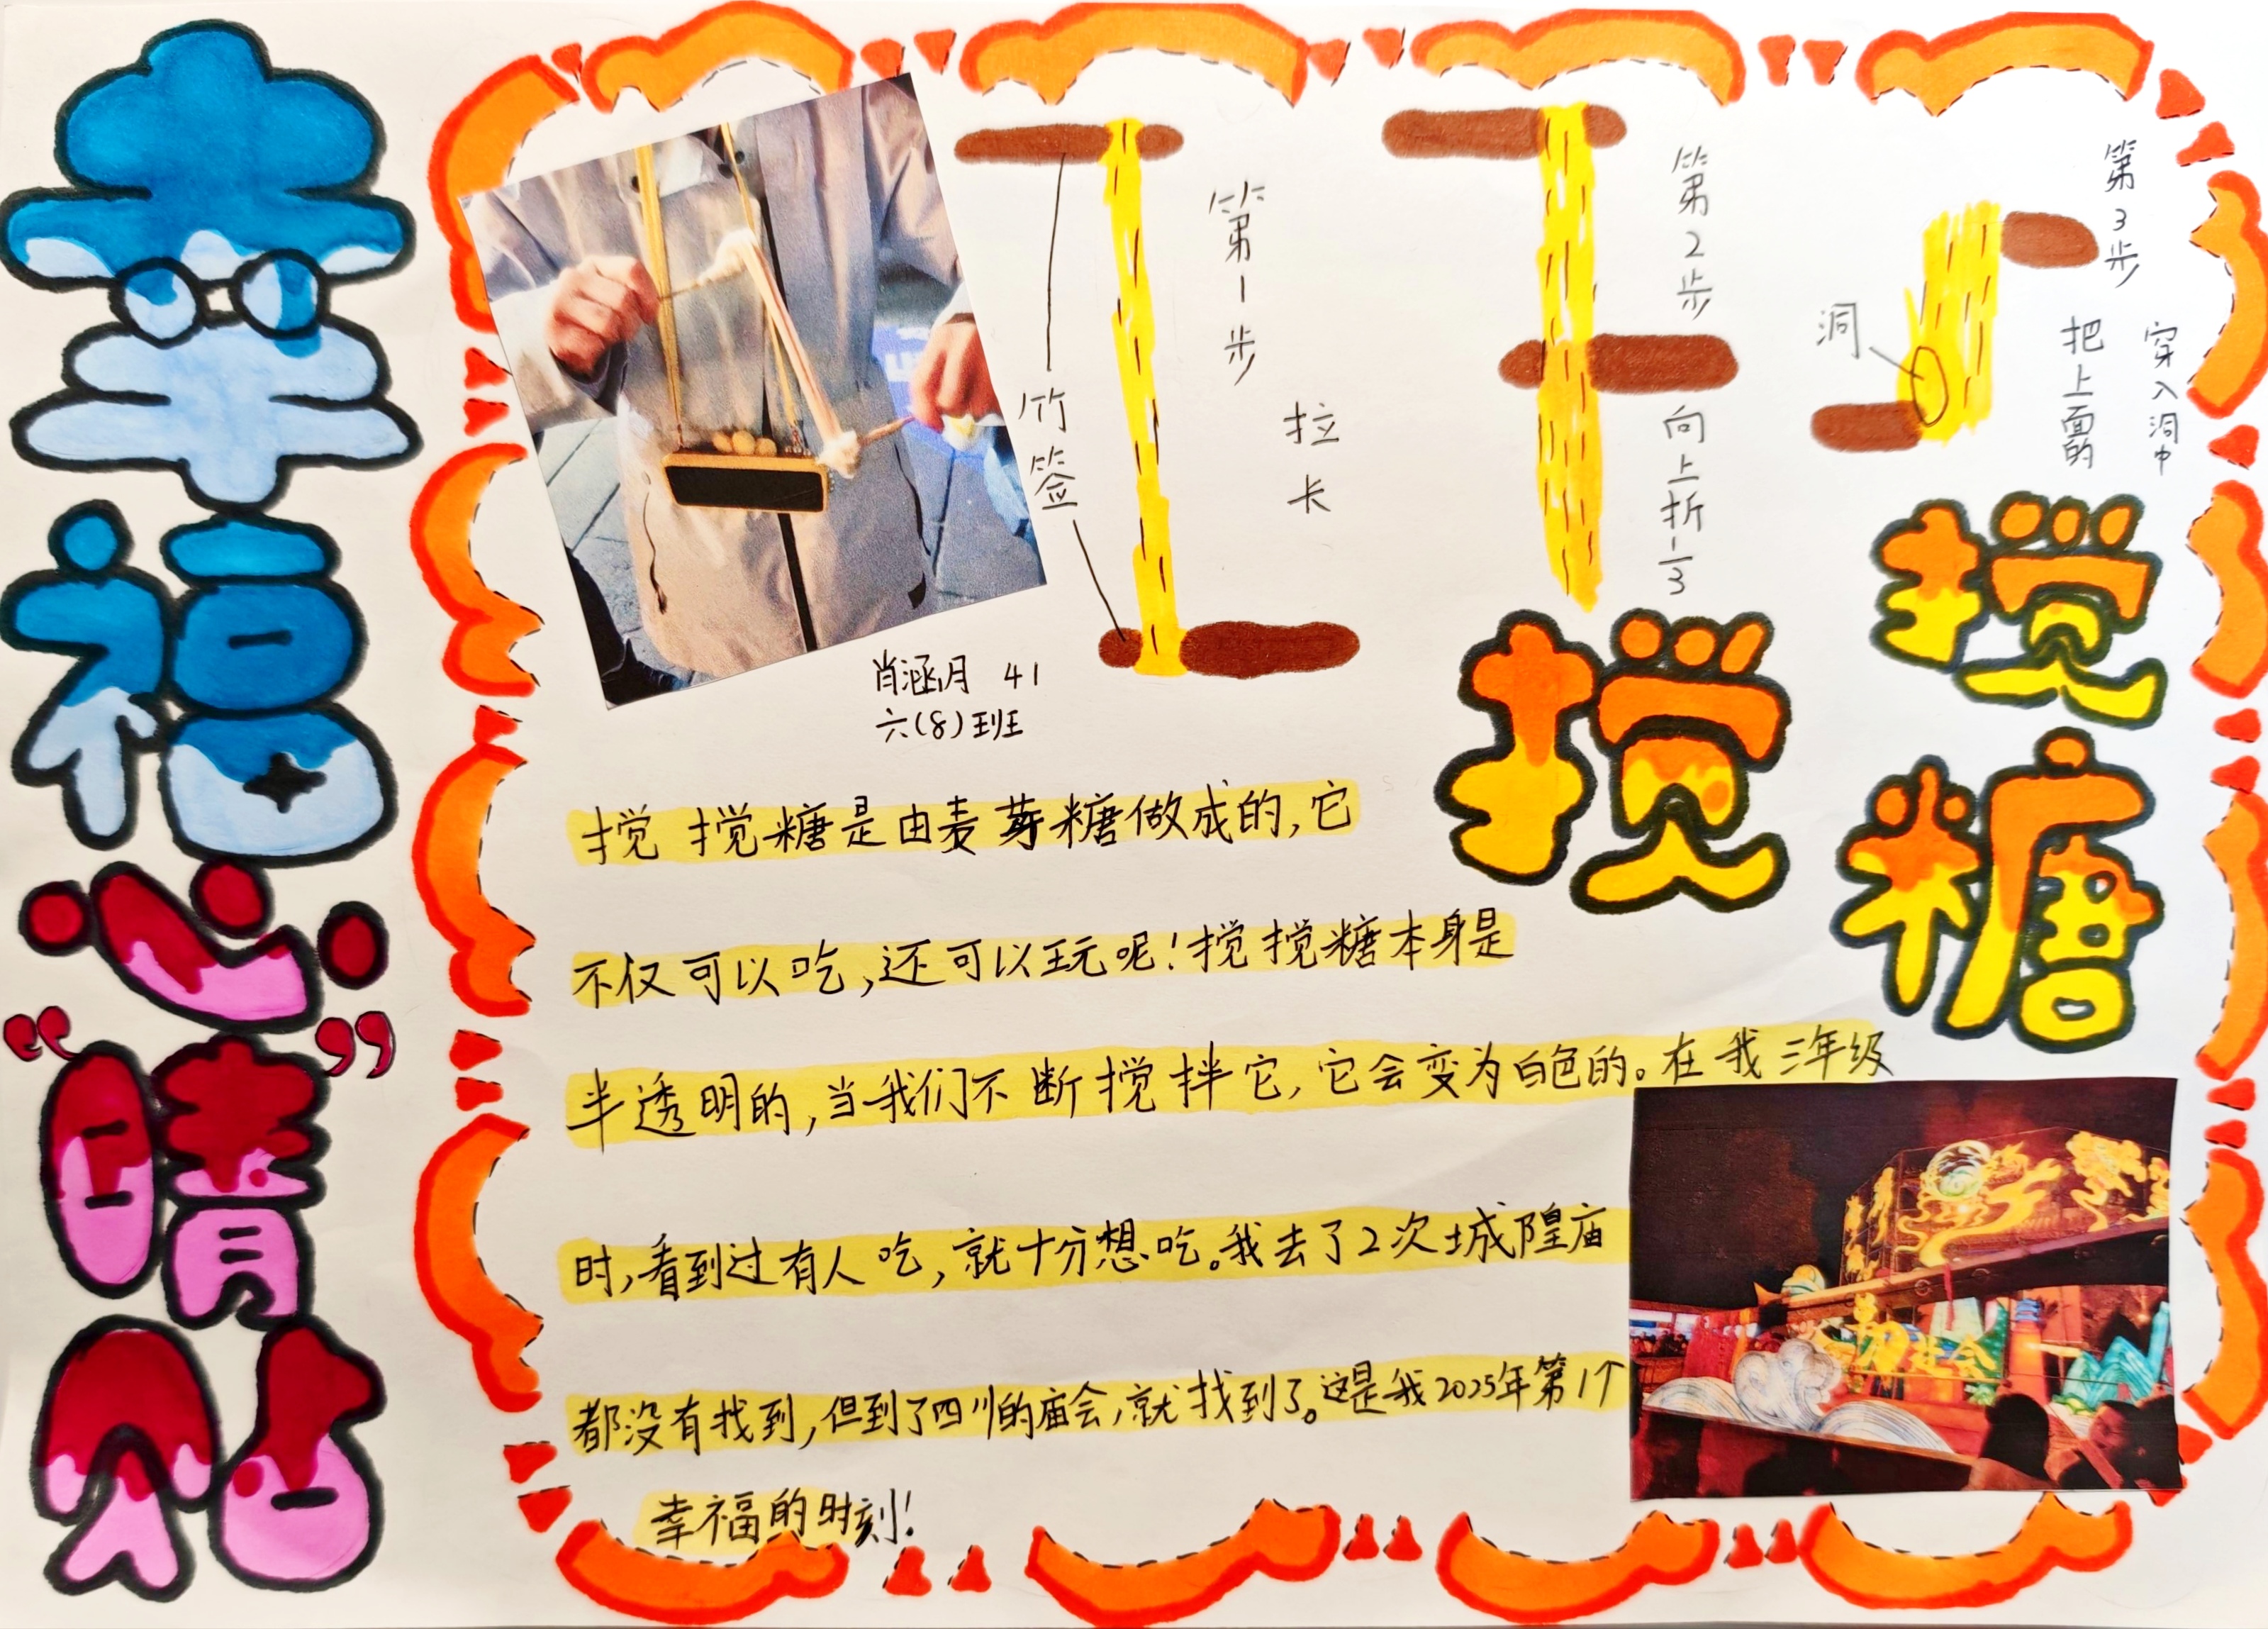 幸福心“晴”帖
竹签
第1步
拉长
第2步
向上折1/3
第3步
把上面的
穿入洞中
洞
搅搅糖
肖涵月 41
六(8)班
搅搅糖是由麦芽糖做成的,它
不仅可以吃,还可以玩呢!搅搅糖本身是
半透明的,当我们不断搅拌它,它会变为白色的。在我三年级
时,看到过有人吃,就十分想吃。我去了2次城隍庙
都没有找到,但到了四川的庙会,就找到了。这是我2025年第1个
幸福的时刻!